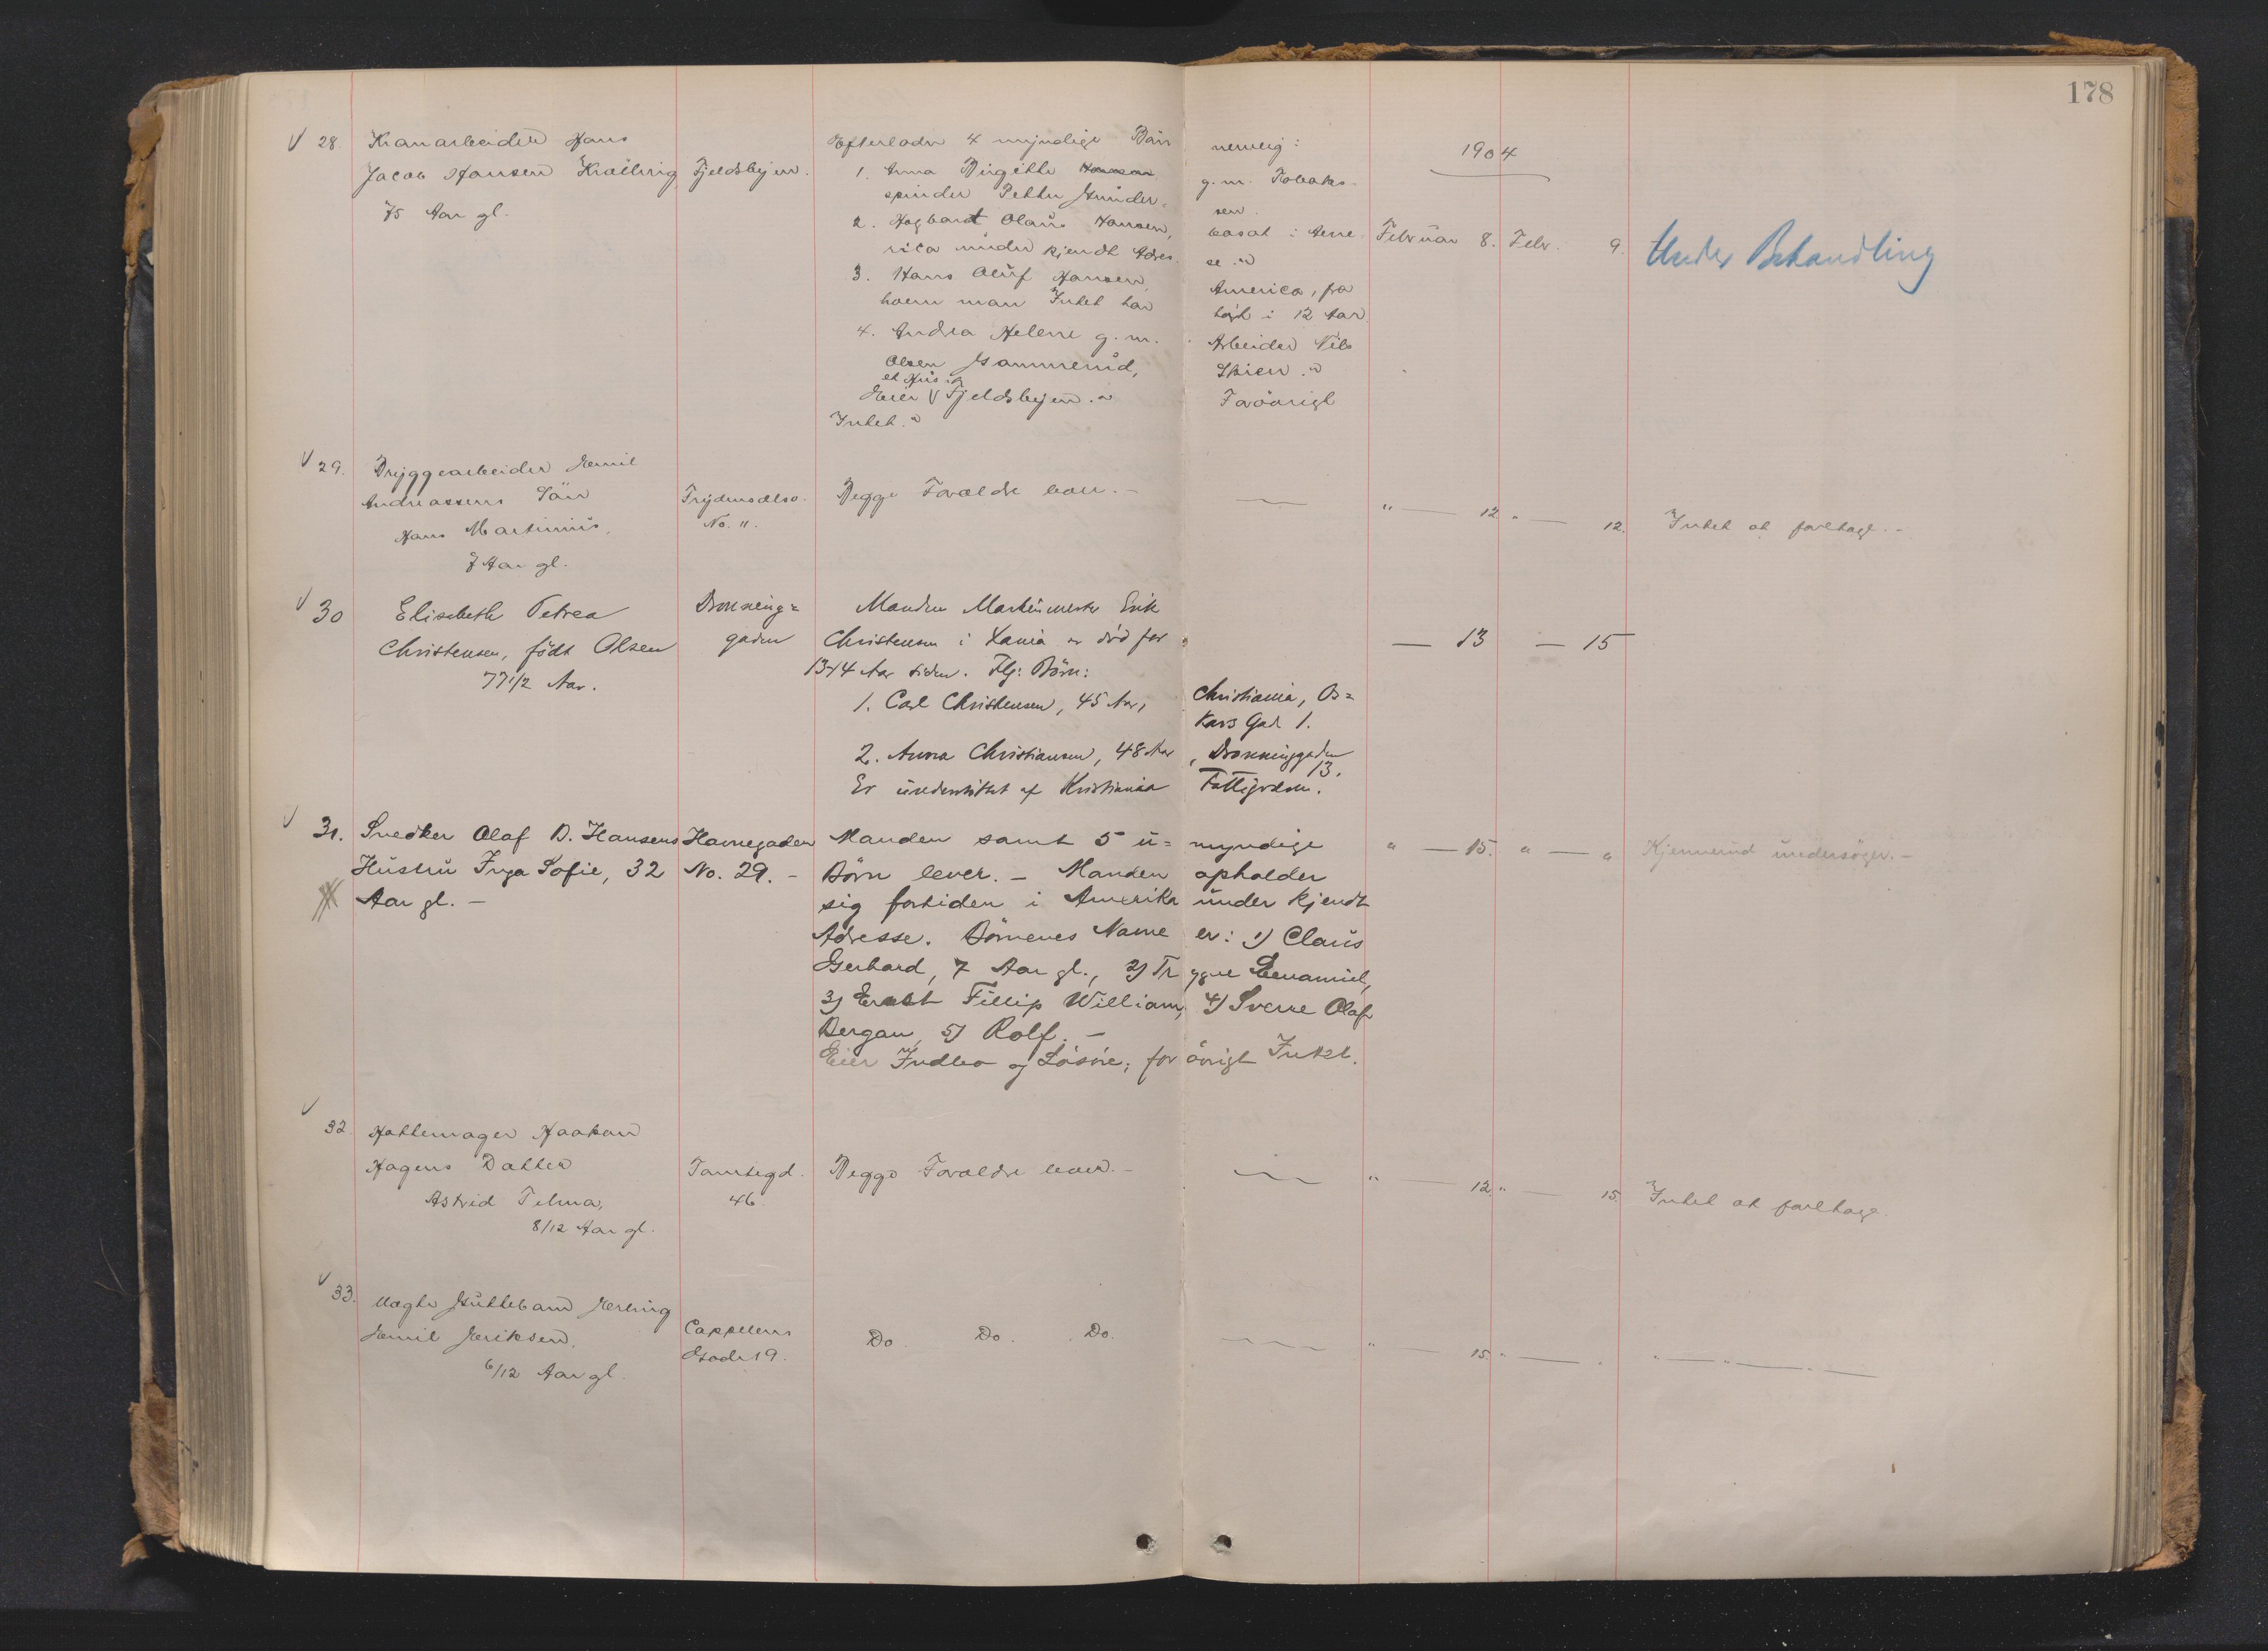 178
1904
V 28. Kranarbeider Hans
Jacob Hansen Kræhrig Fjeldsbyen.
75 Aar gl.
Efterlader 4 myndige Børn nemlig:
1. Anna Birgitte Hansen g. m. Tobaks-
spinder Petter Gunder= sen.
2. Hagbart Olaus Hansen, bosat i Ame
rica under kjendt Adres se.
3. Hans Oluf Hansen, America, fra
hvem man Intet har hørt i 12 Aar.
4. Andrea Helene g. m. Arbeider Nils
Olsen Gammerud, Skien.
Eier et Hus i Fjeldsbyen. Forøvrigt
Intet.
Februar 8. Febr. 9. Under Behandling
V 29. Bryggearbeider Emil
Andreassens Søn Frydensdlso. Begge Forældre lever. -
Hans Martinius, No. 11.
7 Aar gl.
" — 12 " — 12. Intet at foretage. -
V 30 Elisabeth Petrea Dronning=
Christensen, født Olsen gaden
77 1/2 Aar.
Manden Maskinmester Erik
Christensen i Xania er død for
13-14 Aar siden. Flg: Børn:
1. Carl Christensen, 45 Aar, Christiania, Os=
kars Gad 1.
2. Anna Christiansen, 48 Aar, Dronninggaden
13.
Er understøttet af Kristiania Fattigvæsen.
— 13 — 15
V 31. Snedker Olaf B. Hansens Havnegaden Manden samt 5 u= myndige
Hustru Inga Sofie, 32 No. 29. - Børn lever. - Manden opholder
Aar gl. - sig fortiden i Amerika under kjendt
Adresse. Børnenes Navne er: 1) Claus
Gerhard, 7 Aar gl., 2) Trygve Emanuel,
3) Ernst Fillip William, 4) Sverre Olaf
Bergan, 5) Rolf. -
Eier Indbo og Løsøre; for øvrigt Intet.
" — 15. " — " Kjennerud undersøger. -
V 32. Hattemager Haakon
Hagens Datter Tomtegd. Begge Forældre lever. -
Astrid Telma, 46
8/12 Aar gl.
" — 12 " — 15. Intet at foretage.
V 33. Uægte Guttebarn Erling
Emil Eriksen, Cappelens Do. Do. Do.
6/12 Aar gl. Gade 19.
" — 15. " — " " — " — " —